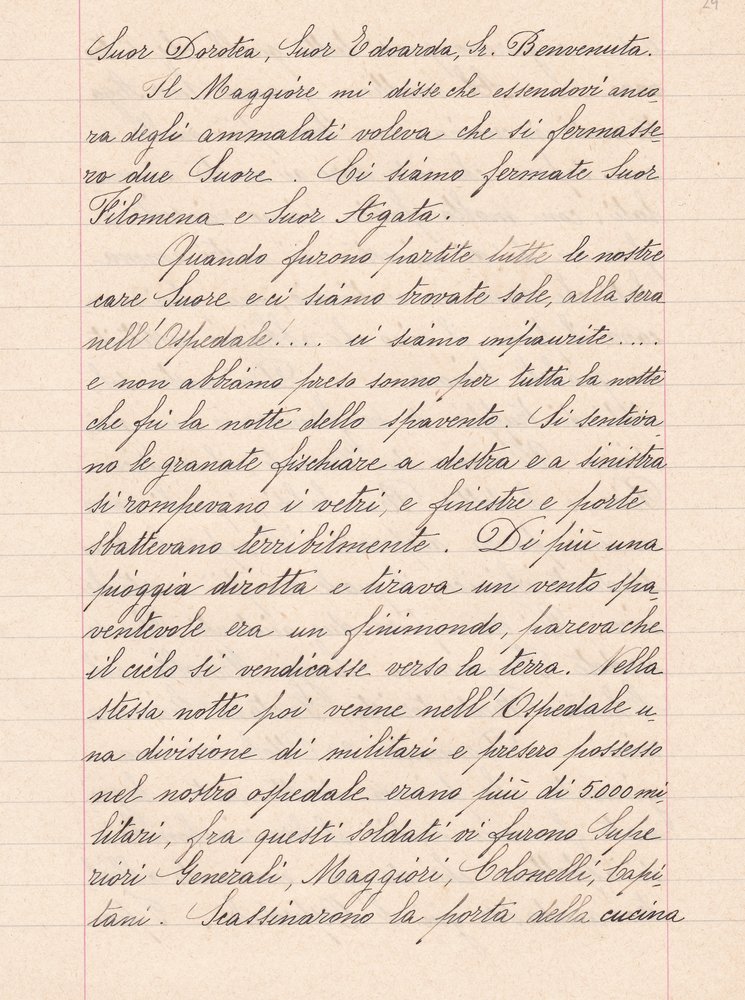 24
Suor Dorotea, Suor Edoarda, Sr. Benvenuta.
Il Maggiore mi disse che essendovi anco-
ra degli ammalati voleva che si fermasse-
ro due Suore. Ci siamo fermate Suor
Filomena e Suor Agata.
Quando furono partite tutte le nostre
care Suore e ci siamo trovate sole, alla sera
nell'Ospedale!... ci siamo impaurite....
e non abbiamo preso sonno per tutta la notte
che fu la notte dello spavento. Si sentiva-
no le granate fischiare a destra e a sinistra
si rompevano i vetri, e finestre e porte
sbattevano terribilmente. Di più una
pioggia dirotta e tirava un vento spa-
ventevole era un finimondo, pareva che
il cielo si vendicasse verso la terra. Nella
stessa notte poi venne nell'Ospedale u-
na divisione di militari e presero possesso
nel nostro ospedale erano più di 5.000 mi-
litari, fra questi soldati vi furono Supe
riori Generali, Maggiori, Colonelli, Capi-
tani. Scassinarono la porta della cucina